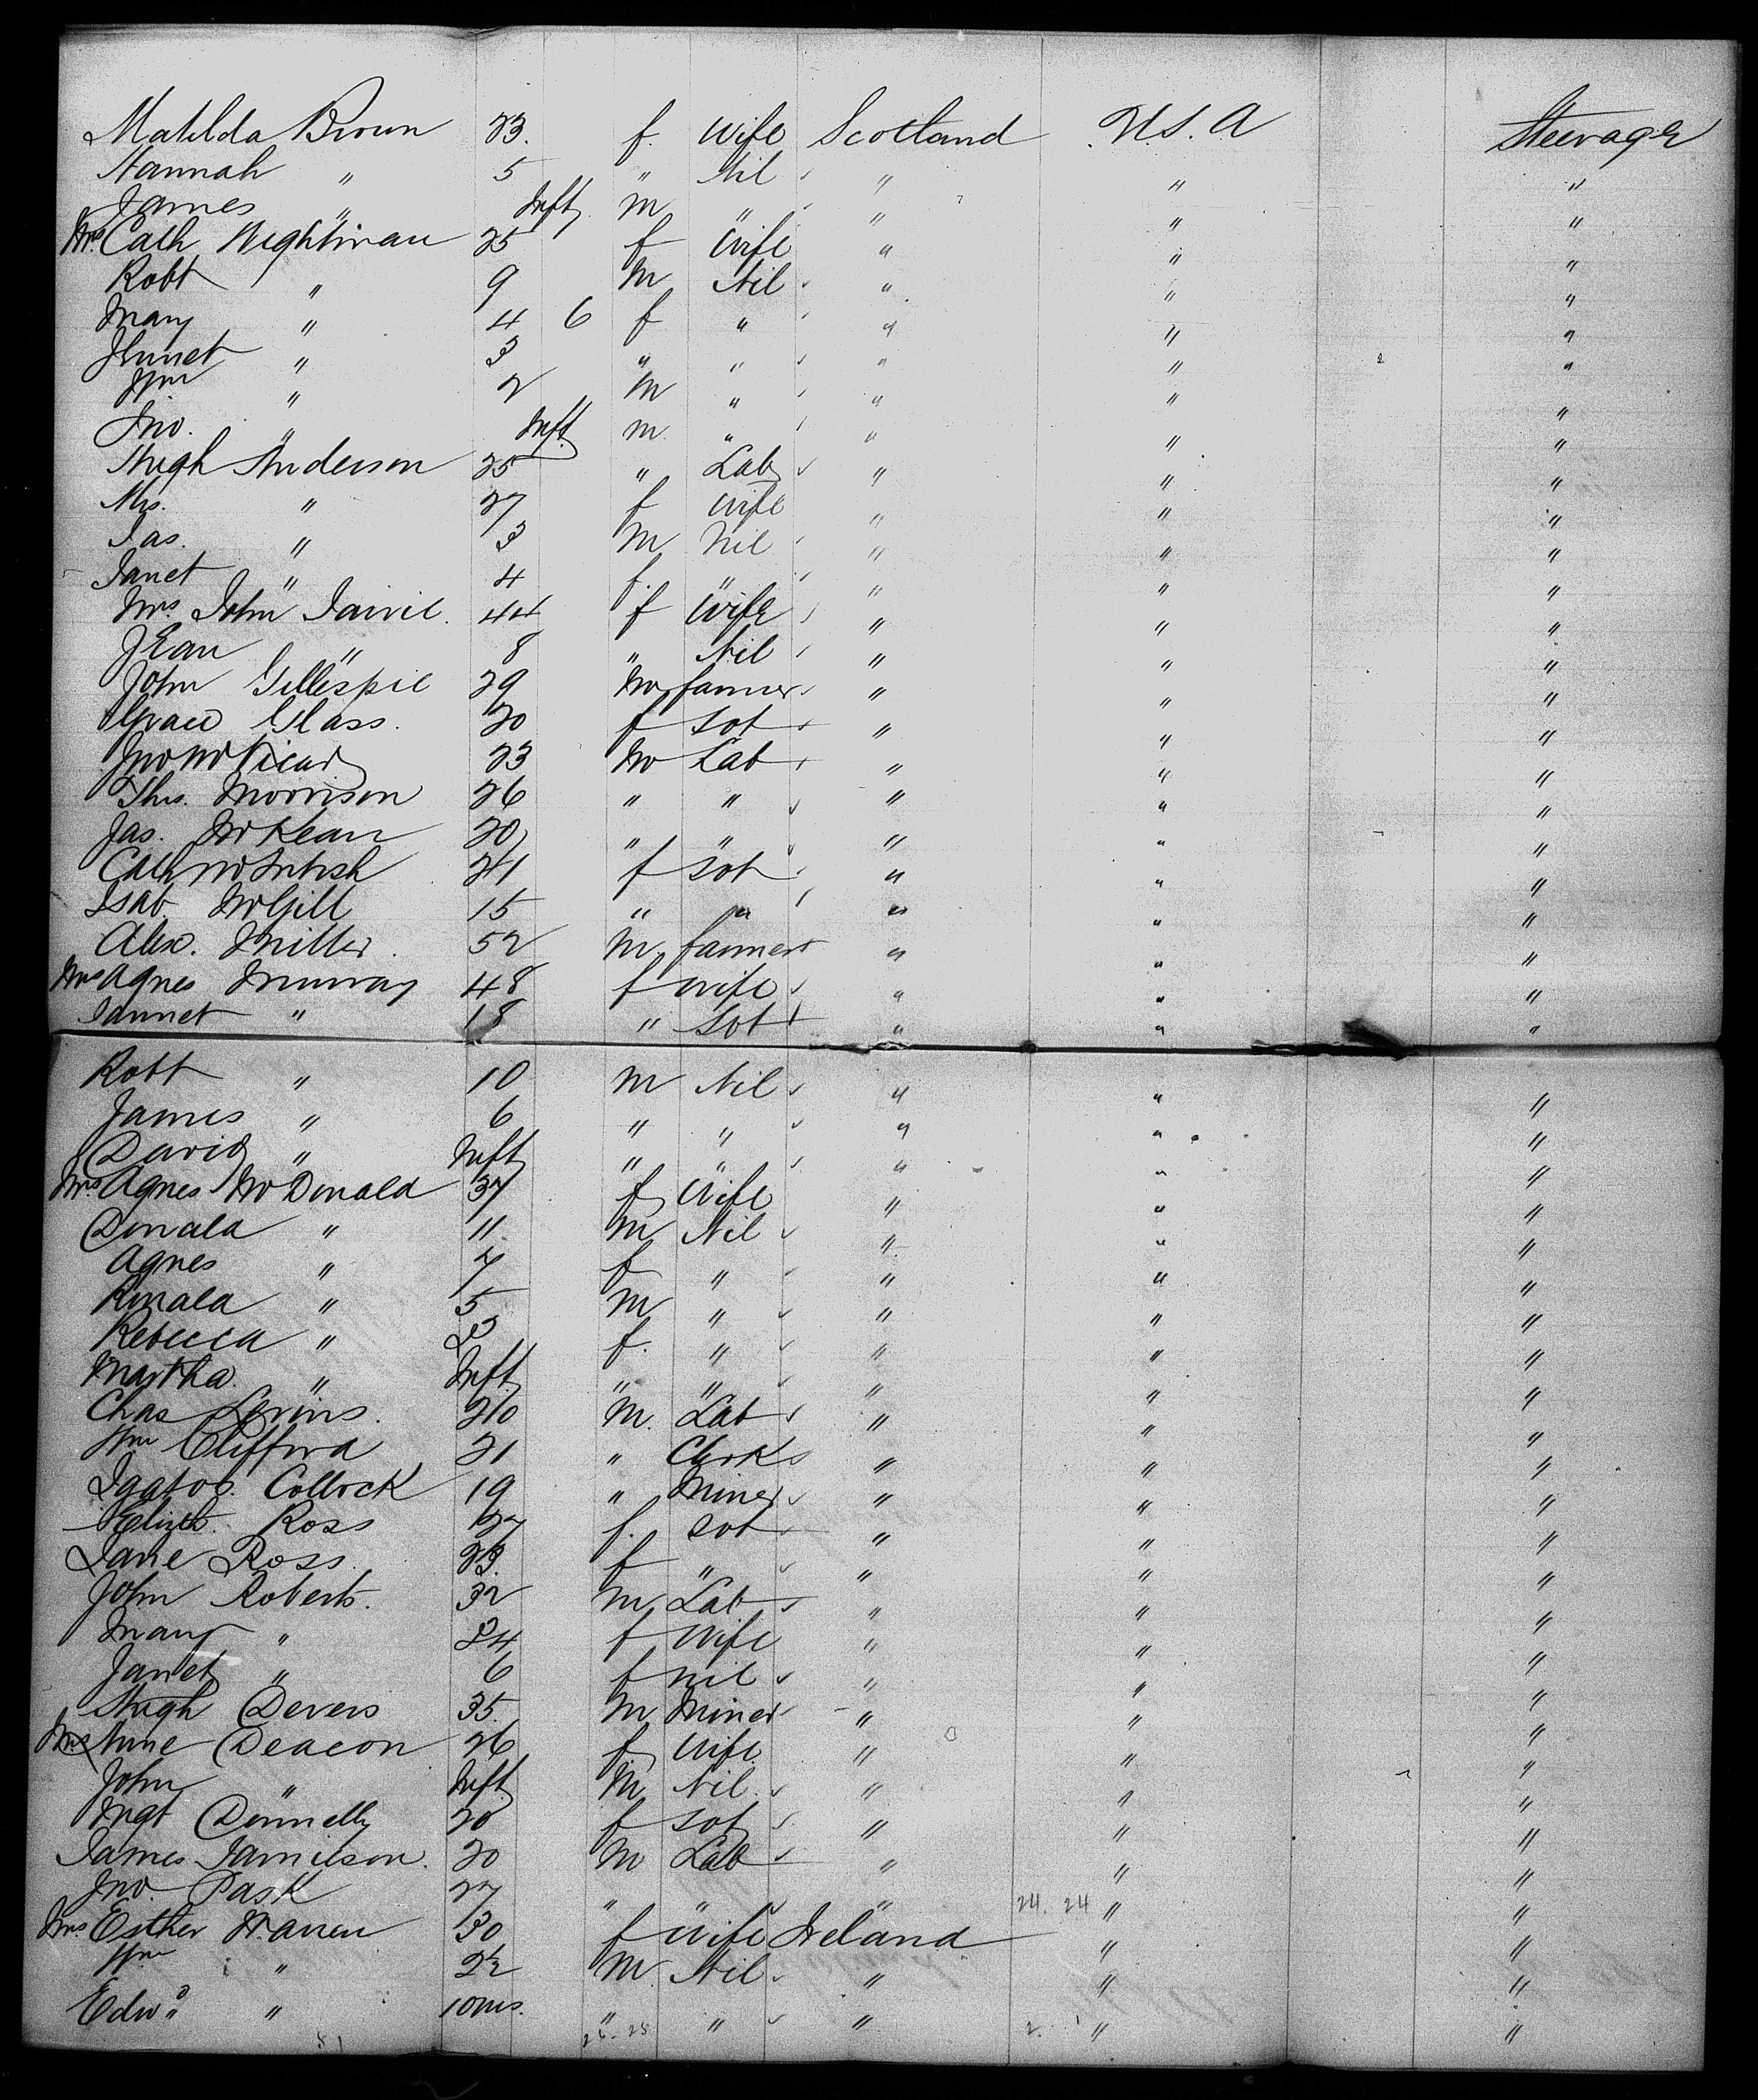 Matilda Brown 23. f. Wife Scotland U.S.A Steerage
Hannah " 5 " Nil " " "
James " Inft. m " " " "
Mrs. Cath Wightman 25 f Wife " " "
Robt " 9 m Nil " " "
Mary " 4 6 f " " " "
Jennet " 3 " " " " "
Wm " 2 m " " " "
Jno. " Inft. m. " " " "
Hugh Anderson 25 " Lab " " "
Mrs. " 27 f Wife " " "
Jas. " 3 m Nil " " "
Janet " 4 f. " " " "
Mrs John Jarvie. 44 f Wife " " "
Jean " 8 " Nil " " "
John Gillespie 29 m farmer " " "
Grace Glass. 20 f Sot " " "
Jno McVicar 23 m Lab " " "
Thos. Morrison 26 " " " " "
Jas. McKean 20 " " " " "
Cath McIntosh 21 f Sot " " "
Isab. McGill 15 " " " " "
Alex. Miller 52 m farmer " " "
Mrs Agnes Murray 48 f Wife " " "
Jannet " 18 " Sot " " "
Robt " 10 m Nil " " "
James " 6 " " " " "
David " Inft " " " " "
Mrs. Agnes McDonald 37 f Wife " " "
Donald " 11. m Nil " " "
Agnes " 7 f " " " "
Ronald " 5 m " " " "
Rebecca " f. " " " "
Martha. " Inft. " " " " "
Chas 20 m. Lab " " "
Wm Clifford 21 " Clerk " " "
Collock 19 " Miner " " "
Elizth. Ross 27 f. Sot " " "
Jane Ross. 23. f " " " "
John Roberts. 32 m Lab " " "
Mary " 24 f Wife " " "
Janet " 6 f nil " " "
Hugh Devers 35. m Miner " " "
Mrs Anne Deacon 26 f Wife " " "
John " Inft m Nil " " "
Mgt Donnelly 20 f Sot " " "
James Jamieson. 20 m Lab " " "
Jno. Pask 27 " " " 24. 24 " "
Mrs. Esther Warren 30 f Wife Ireland " "
Wm " 2½ m Nil " " "
Edwd " 10ms. " " " " "
26-28 2. 1